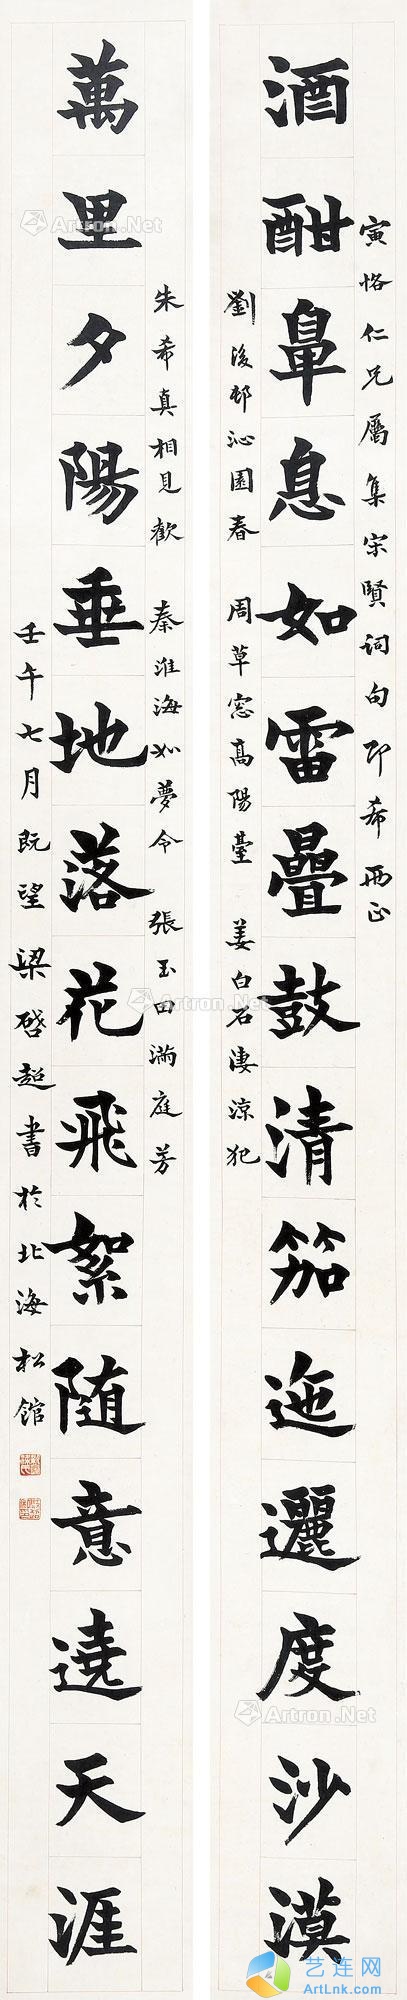 寅恪仁兄屬集宋賢詞句即希两正
酒酣鼻息如雷疊鼓清笳迤邐度沙漠
劉後邨沁園春 周草窓高陽臺 姜白石淒涼犯
朱希真相見歡 秦淮海如夢令 張玉田滿庭芳
萬里夕陽垂地落花飛絮随意遶天涯
壬午七月既望梁啓超書於北海松館
Artron.Net
Artron.Net
Artron.Net
Artron.Net
Artron.Net
Artron.Net
艺连网
ArtLnk.com